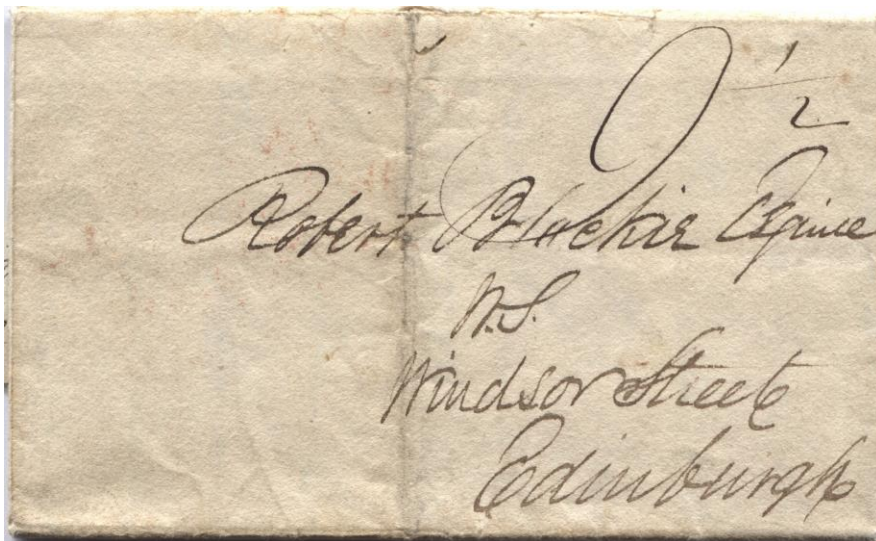 1/2
Robert Blackie Esquire
W.S.
Windsor Street
Edinburgh